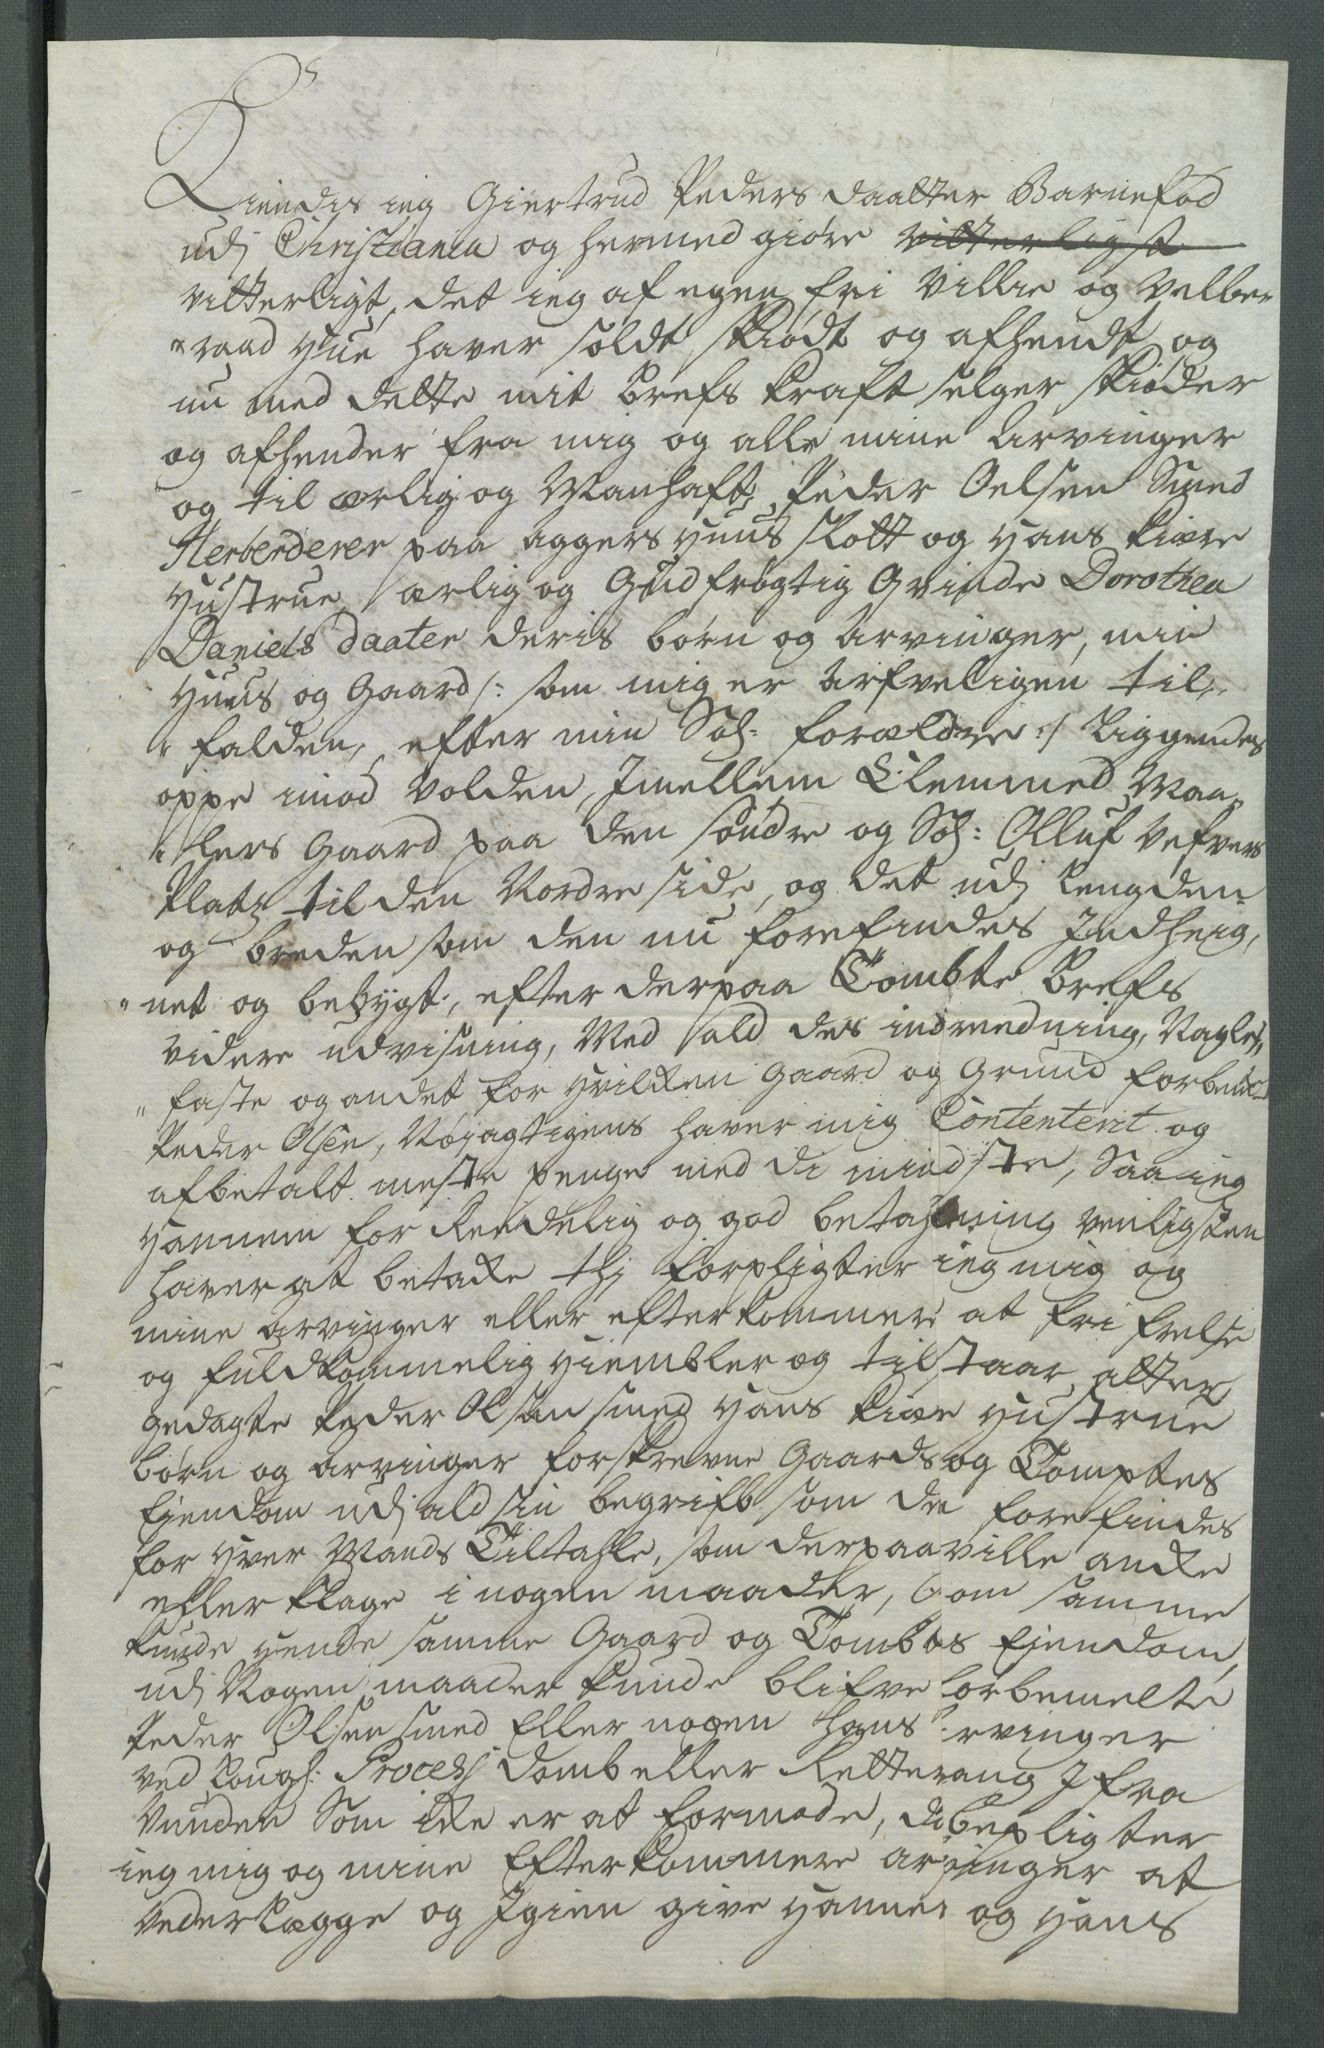 Kiendis ieg Giertrud Peders daatter Barnefød
udj Christiania og hermed giøre vitterligst
vitterligt, det ieg af egen fri Villie og Velbe„
„raad Hue haver soldt, skiødt og afhendt og
nu med dette mit brefs kraft selger skiøder
og afhender fra mig og alle mine Arvinger
og til ærlig og Manhaft, Peder Oelsen Smed
Herberderer paa aggers Huus slott og Hans kiære
Hustrue, ærlig og Gudfrøgtig Qvinde Dorothea
Daniels daater deris børn og Arvinger, min
Huus og Gaard /: som mig er arfveligen til„
„falden, efter min Sal: forældre :/ Liggendes
oppe imod Volden, Jmellem Clemmed Maa„
„lers Gaard paa den søndre og Sal: Olluf Vefvers
Platz til den Nordre side, og det udj Lengden
og breden som den nu forefindes Jndheig„
„net og bebygt, efter derpaa Tombte brefs
videre udvisning, Med ald des indreedning, Nagle„
„faste og andet for Hvilken Gaard og Grund forbem:te
Peder Olsen, Nøjagtigens haver mig Contenterit og
afbetalt meste penge med di mindste, Saa ieg
Hannem for Reedelig og god betahlning venligsten
haver at betake thj forpligter ieg mig og
mine Arvinger eller efterkommere at fri frelse
og fuldkommelig Hiembler og tilstaar, atter
gedagte Peder Olsen smed Hans kiære Hustrue
børn og Arvinger forskrevne Gaards og Tomptes
Eiendom udj ald sin begrifb som de forefindes
for Hver Mands Tiltahle, som derpaa ville anke
eller klage i nogen maader, Om samme
kunde Hende samme Gaard og Tombtes Eiendom,
udj Nogen maader kunde blifve forbemelte
Peder Olsen smed Eller nogen Hans Arvinger
ved Lougl: Procesz Domb eller Rettergang Jfra
Vunden Som ike er at formode, da bepligter
ieg mig og mine Efterkommere arvinger at
Vederlægge og Jgien give Hannem og Hans